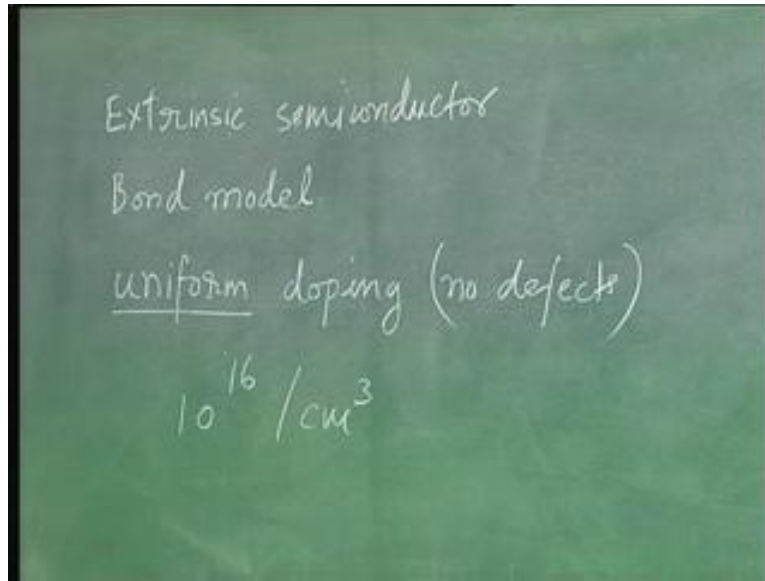 Extrinsic semiconductor
Bond model
uniform doping (no defects)
10^16 /cm^3